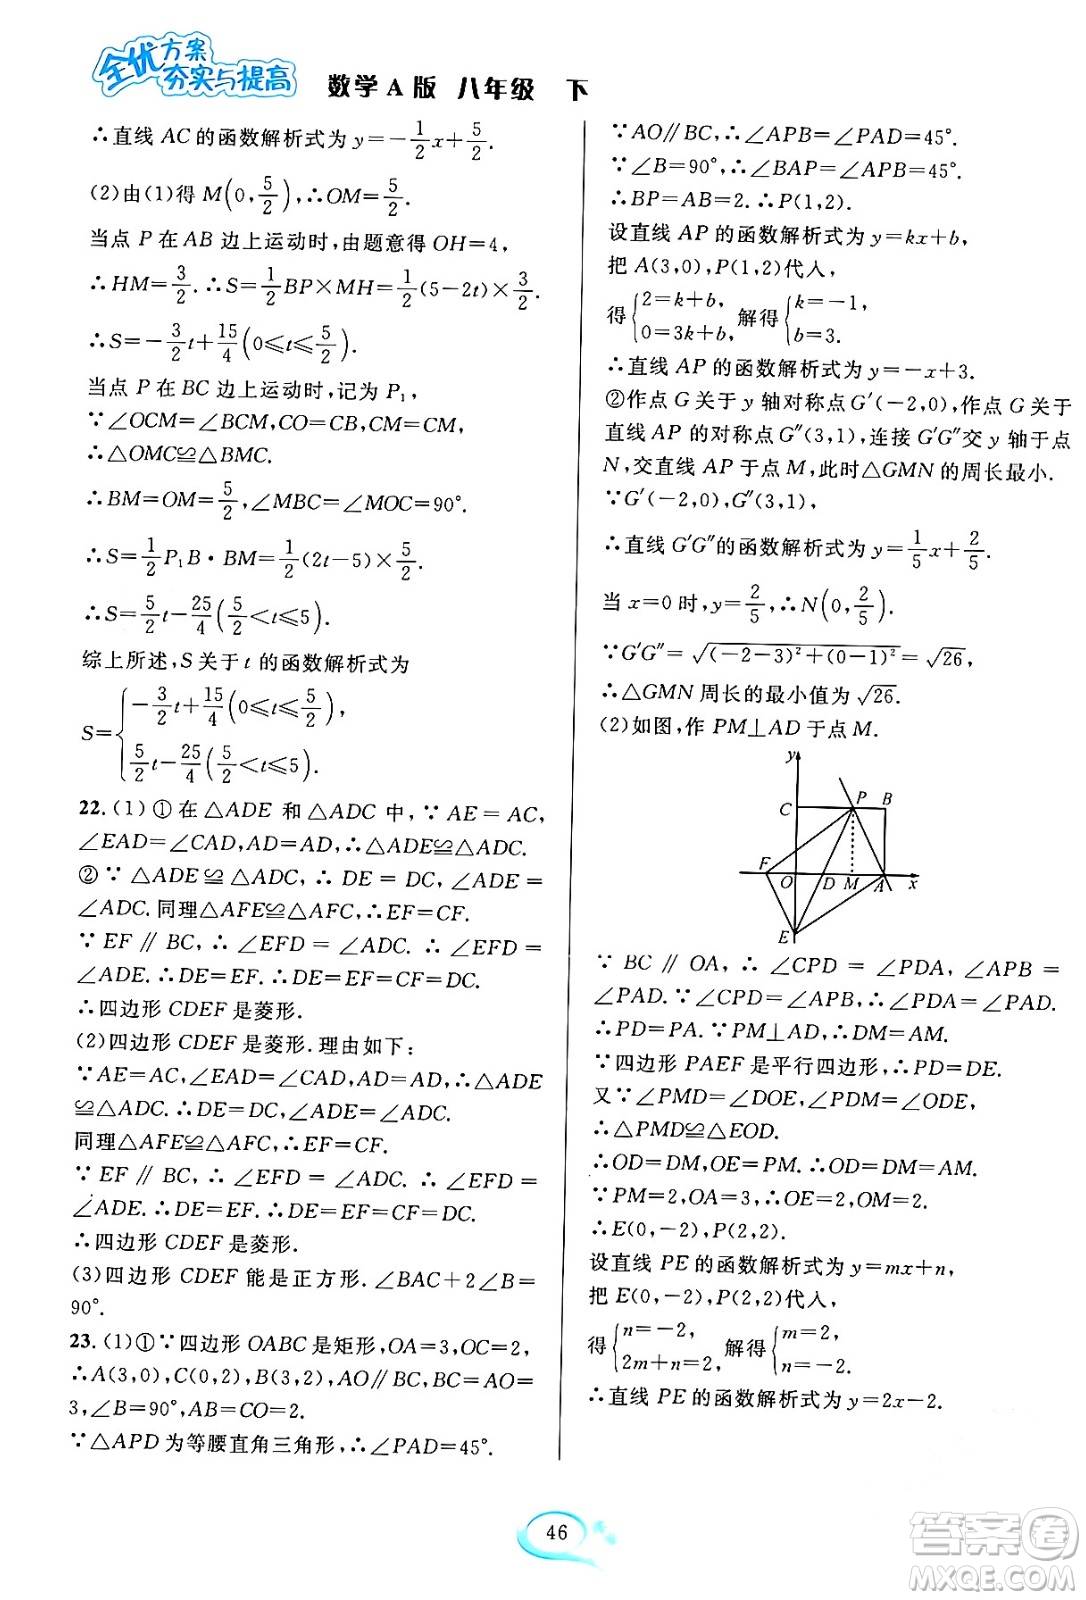 全优方案
夯实与提高
数学A版 八年级 下
∴直线 AC 的函数解析式为 y=-1/2x+5/2.
(2)由(1)得 M(0,5/2),∴OM=5/2.
当点 P 在 AB 边上运动时,由题意得 OH=4,
∴HM=3/2.∴S=1/2BP×MH=1/2(5-2t)×3/2.
∴S=-3/2t+15/4(0≤t≤5/2).
当点 P 在 BC 边上运动时,记为 P₁,
∵∠OCM=∠BCM,CO=CB,CM=CM,
∴△OMC≌△BMC.
∴BM=OM=5/2,∠MBC=∠MOC=90°.
∴S=1/2P₁B·BM=1/2(2t-5)×5/2.
∴S=5/2t-25/4(5/2<t≤5).
综上所述,S 关于 t 的函数解析式为
S={-3/2t+15/4(0≤t≤5/2),
5/2t-25/4(5/2<t≤5).
22.(1)①在△ADE 和△ADC 中,∵AE=AC,
∠EAD=∠CAD,AD=AD,∴△ADE≌△ADC.
②∵△ADE≌△ADC,∴DE=DC,∠ADE
=∠ADC.同理△AFE≌△AFC,∴EF=CF.
∵EF∥BC,∴∠EFD=∠ADC.∴∠EFD=
∠ADE.∴DE=EF.∴DE=EF=CF=DC.
∴四边形 CDEF 是菱形.
(2)四边形 CDEF 是菱形.理由如下:
∵AE=AC,∠EAD=∠CAD,AD=AD,∴△ADE
≌△ADC.∴DE=DC,∠ADE=∠ADC.
同理△AFE≌△AFC,∴EF=CF.
∵EF∥BC,∴∠EFD=∠ADC.∴∠EFD=
∠ADE.∴DE=EF.∴DE=EF=CF=DC.
∴四边形 CDEF 是菱形.
(3)四边形 CDEF 能是正方形.∠BAC+2∠B=
90°.
23.(1)①∵四边形 OABC 是矩形,OA=3,OC=2,
∴A(3,0),C(0,2),B(3,2),OA∥BC,BC=AO=
3,∠B=90°,AB=CO=2.
∵△APD 为等腰直角三角形,∴∠PAD=45°.
∵AO∥BC,∴∠APB=∠PAD=45°.
∵∠B=90°,∴∠BAP=∠APB=45°.
∴BP=AB=2.∴P(1,2).
设直线 AP 的函数解析式为 y=kx+b,
把 A(3,0),P(1,2)代入,
得{2=k+b, 0=3k+b, 解得{k=-1, b=3.
∴直线 AP 的函数解析式为 y=-x+3.
②作点 G 关于 y 轴对称点 G′(-2,0),作点 G 关于
直线 AP 的对称点 G″(3,1),连接 G′G″交 y 轴于点
N,交直线 AP 于点 M,此时△GMN 的周长最小.
∵G′(-2,0),G″(3,1),
∴直线 G′G″的函数解析式为 y=1/5x+2/5.
当 x=0 时,y=2/5,∴N(0,2/5).
∵G′G″=√((-2-3)²+(0-1)²)=√26,
∴△GMN 周长的最小值为√26.
(2)如图,作 PM⊥AD 于点 M.
y
C P B
F O D M A x
E
∵BC∥OA,∴∠CPD=∠PDA,∠APB=
∠PAD.∵∠CPD=∠APB,∴∠PDA=∠PAD.
∴PD=PA.∵PM⊥AD,∴DM=AM.
∵四边形 PAEF 是平行四边形,∴PD=DE.
又∵∠PMD=∠DOE,∠PDM=∠ODE,
∴△PMD≌△EOD.
∴OD=DM,OE=PM.∴OD=DM=AM.
∵PM=2,OA=3,∴OE=2,OM=2.
∴E(0,-2),P(2,2).
设直线 PE 的函数解析式为 y=mx+n,
把 E(0,-2),P(2,2)代入,
得{n=-2, 2m+n=2, 解得{m=2, n=-2.
∴直线 PE 的函数解析式为 y=2x-2.
46
答案圈
MXQE.COM